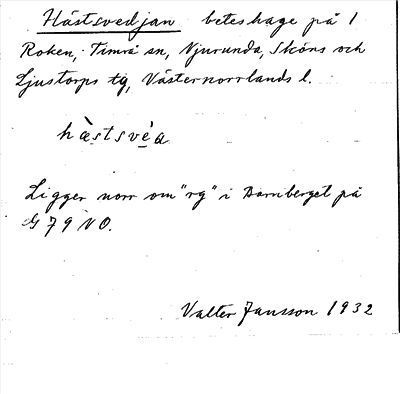 Hästsvedjan beteshage på 1
Roken, Timrå sn, Njurunda, Sköns och
Ljustorps tg, Västernorrlands l.
hæ̀stsvéa
Ligger norr om "rg" i Barnberget på
G 79 NO.
Valter Jansson 1932